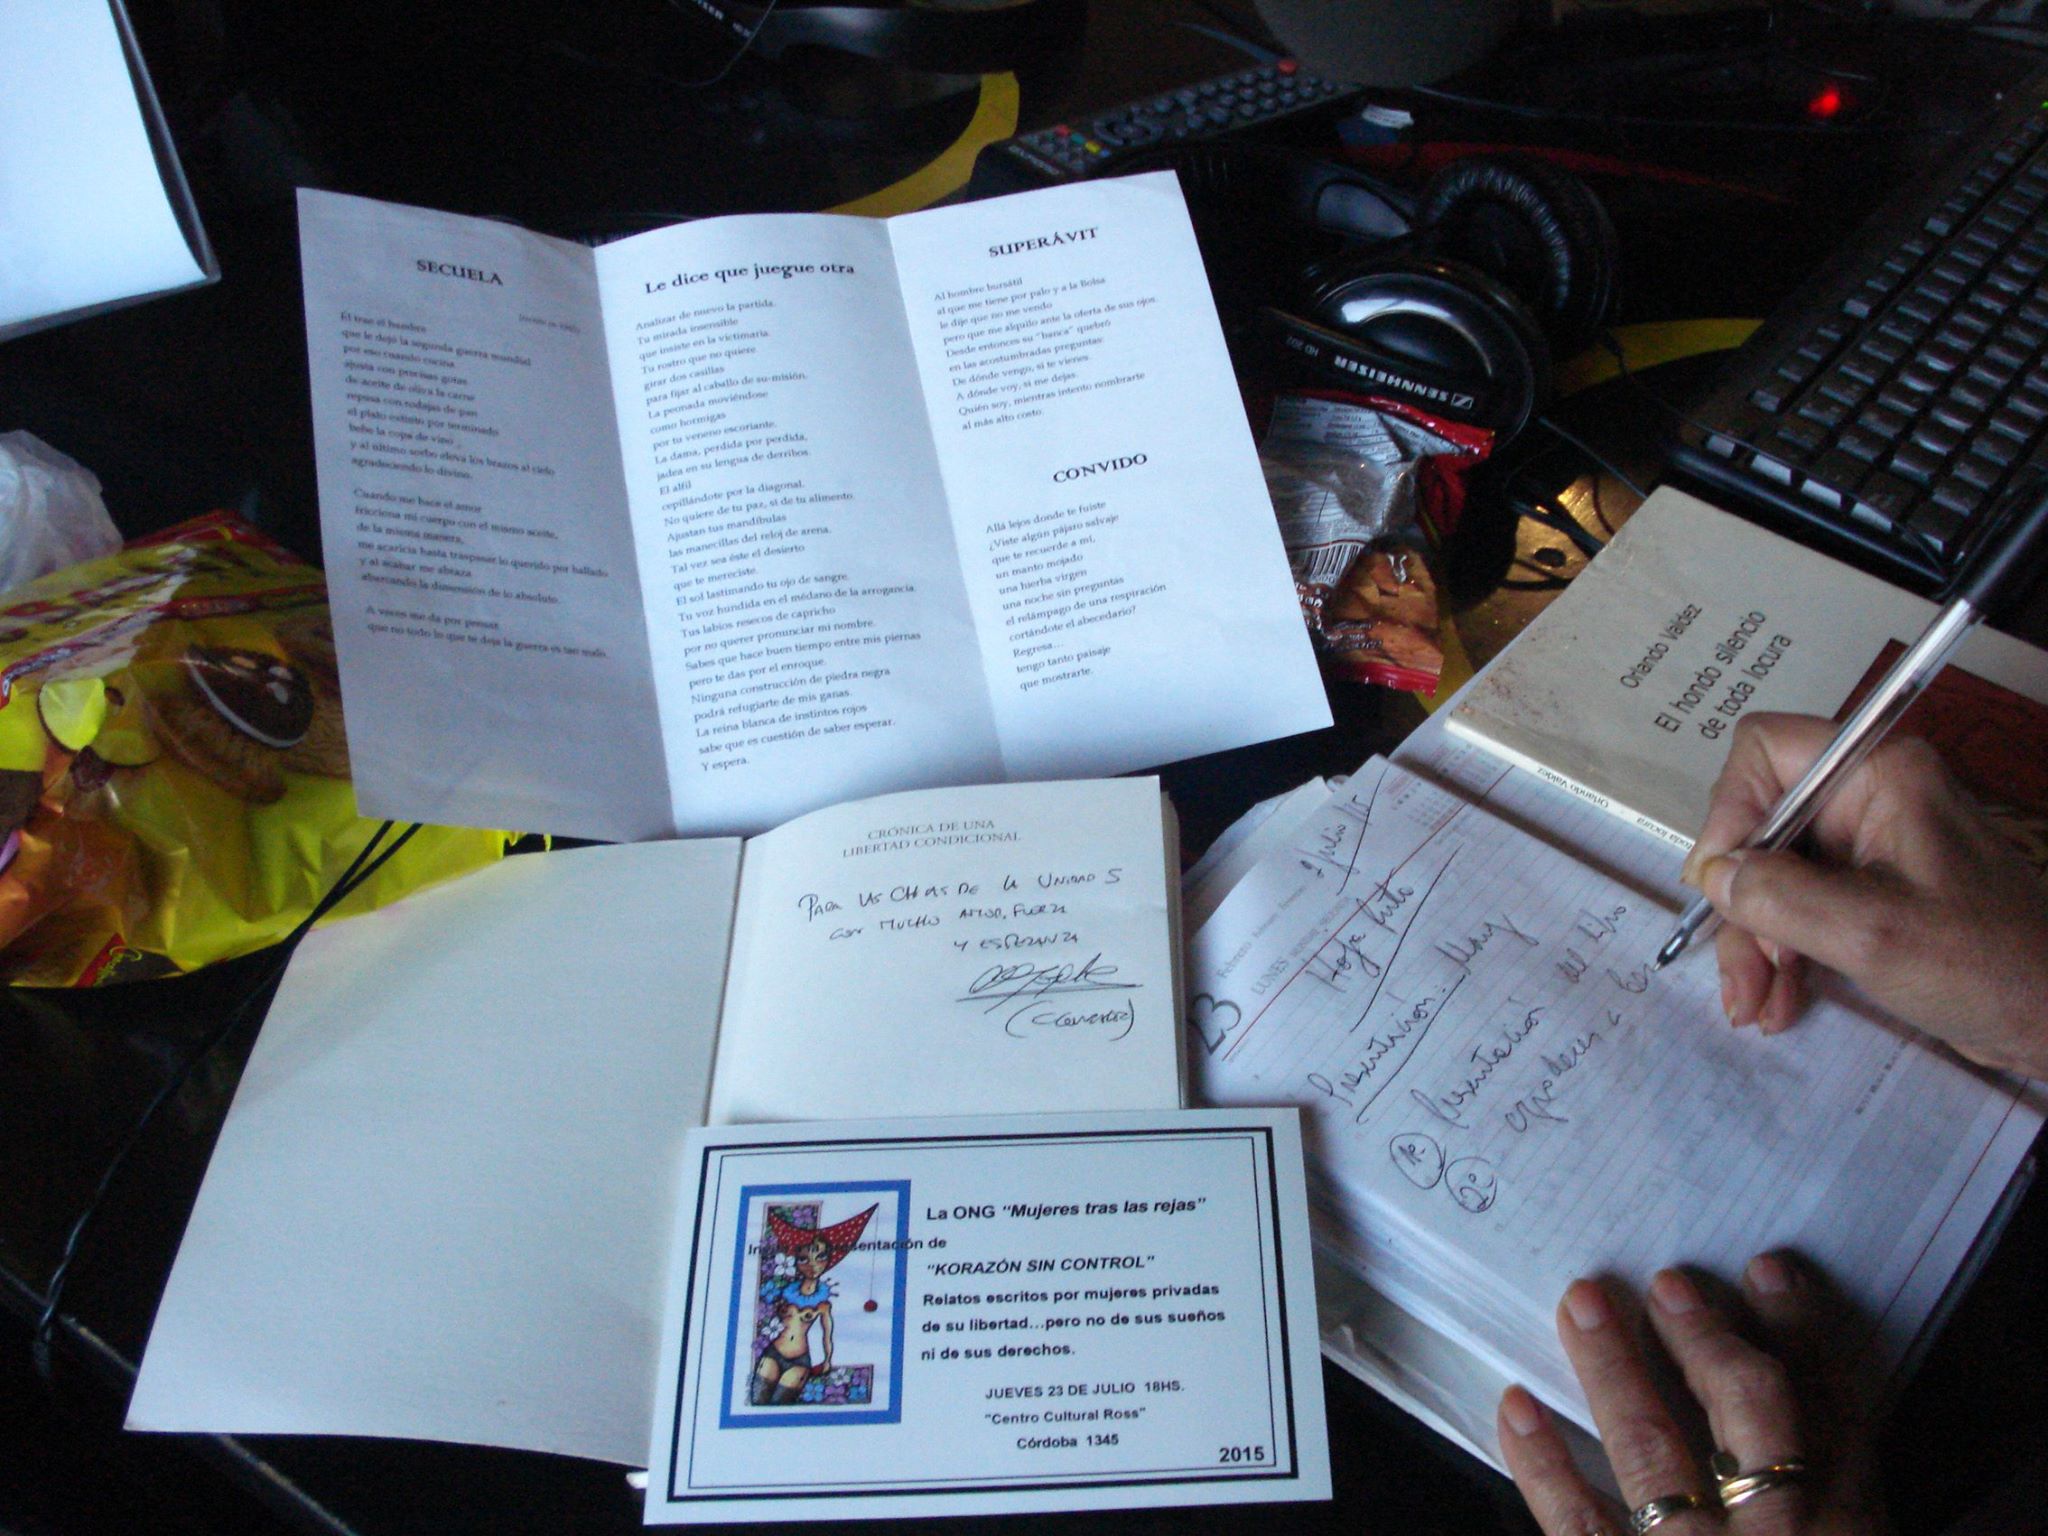 SECUELA
Él trae el hambre
que le dejó la segunda guerra mundial
por eso cuando cocina
ajusta con precisas gotas
de aceite de oliva la carne
repasa con rodajas de pan
el plato extinto por terminado
bebe la copa de vino
y al último sorbo eleva los brazos al cielo
agradeciendo lo divino.
Cuando me hace el amor
fricciona mi cuerpo con el mismo aceite,
de la misma manera,
me acaricia hasta traspasar lo querido por hallado
y al acabar me abraza
abarcando la dimensión de lo absoluto.
A veces me da por pensar
que no todo lo que te deja la guerra es tan malo.
Le dice que juegue otra
Analizar de nuevo la partida.
Tu mirada insensible
que insiste en la victimaria.
Tu rostro que no quiere
girar dos casillas
para fijar al caballo de su misión.
La peonada moviéndose
como hormigas
por tu veneno escoriante.
La dama, perdida por perdida,
jadea en su lengua de derribos.
El alfil
cepillándote por la diagonal.
No quiere de tu paz, si de tu alimento.
Ajustan tus mandíbulas
las manecillas del reloj de arena.
Tal vez sea éste el desierto
que te mereciste.
El sol lastimando tu ojo de sangre.
Tu voz hundida en el médano de la arrogancia.
Tus labios resecos de capricho
por no querer pronunciar mi nombre.
Sabes que hace buen tiempo entre mis piernas
pero te das por el enroque.
Ninguna construcción de piedra negra
podrá refugiarte de mis ganas.
La reina blanca de instintos rojos
sabe que es cuestión de saber esperar.
Y espera.
SUPERÁVIT
Al hombre bursátil
al que me tiene por palo y a la Bolsa
le dije que no me vendo
pero que me alquilo ante la oferta de sus ojos.
Desde entonces su "banca" quebró
en las acostumbradas preguntas:
De dónde vengo, si te vienes.
A dónde voy, si me dejas.
Quién soy, mientras intento nombrarte
al más alto costo.
CONVIDO
Allá lejos donde te fuiste
¿Viste algún pájaro salvaje
que te recuerde a mí,
un manto mojado
una hierba virgen
una noche sin preguntas
el relámpago de una respiración
cortándote el abecedario?
Regresa...
tengo tanto paisaje
que mostrarte.
SENNHEISER
HD 202
Orlando Valdez
El hondo silencio
de toda locura
Orlando Valdez
toda locura
CRÓNICA DE UNA
LIBERTAD CONDICIONAL
PARA LAS CHICAS DE LA UNIDAD 5
CON MUCHO AMOR, FUERZA
Y ESPERANZA
23
Febrero
LUNES
2 Julio 15
Hoja Ruta
Presentación: Mary
1º Presentación del libro
2º
La ONG "Mujeres tras las rejas"
presentación de
"KORAZÓN SIN CONTROL"
Relatos escritos por mujeres privadas
de su libertad...pero no de sus sueños
ni de sus derechos.
JUEVES 23 DE JULIO 18HS.
"Centro Cultural Ross"
Córdoba 1345
2015